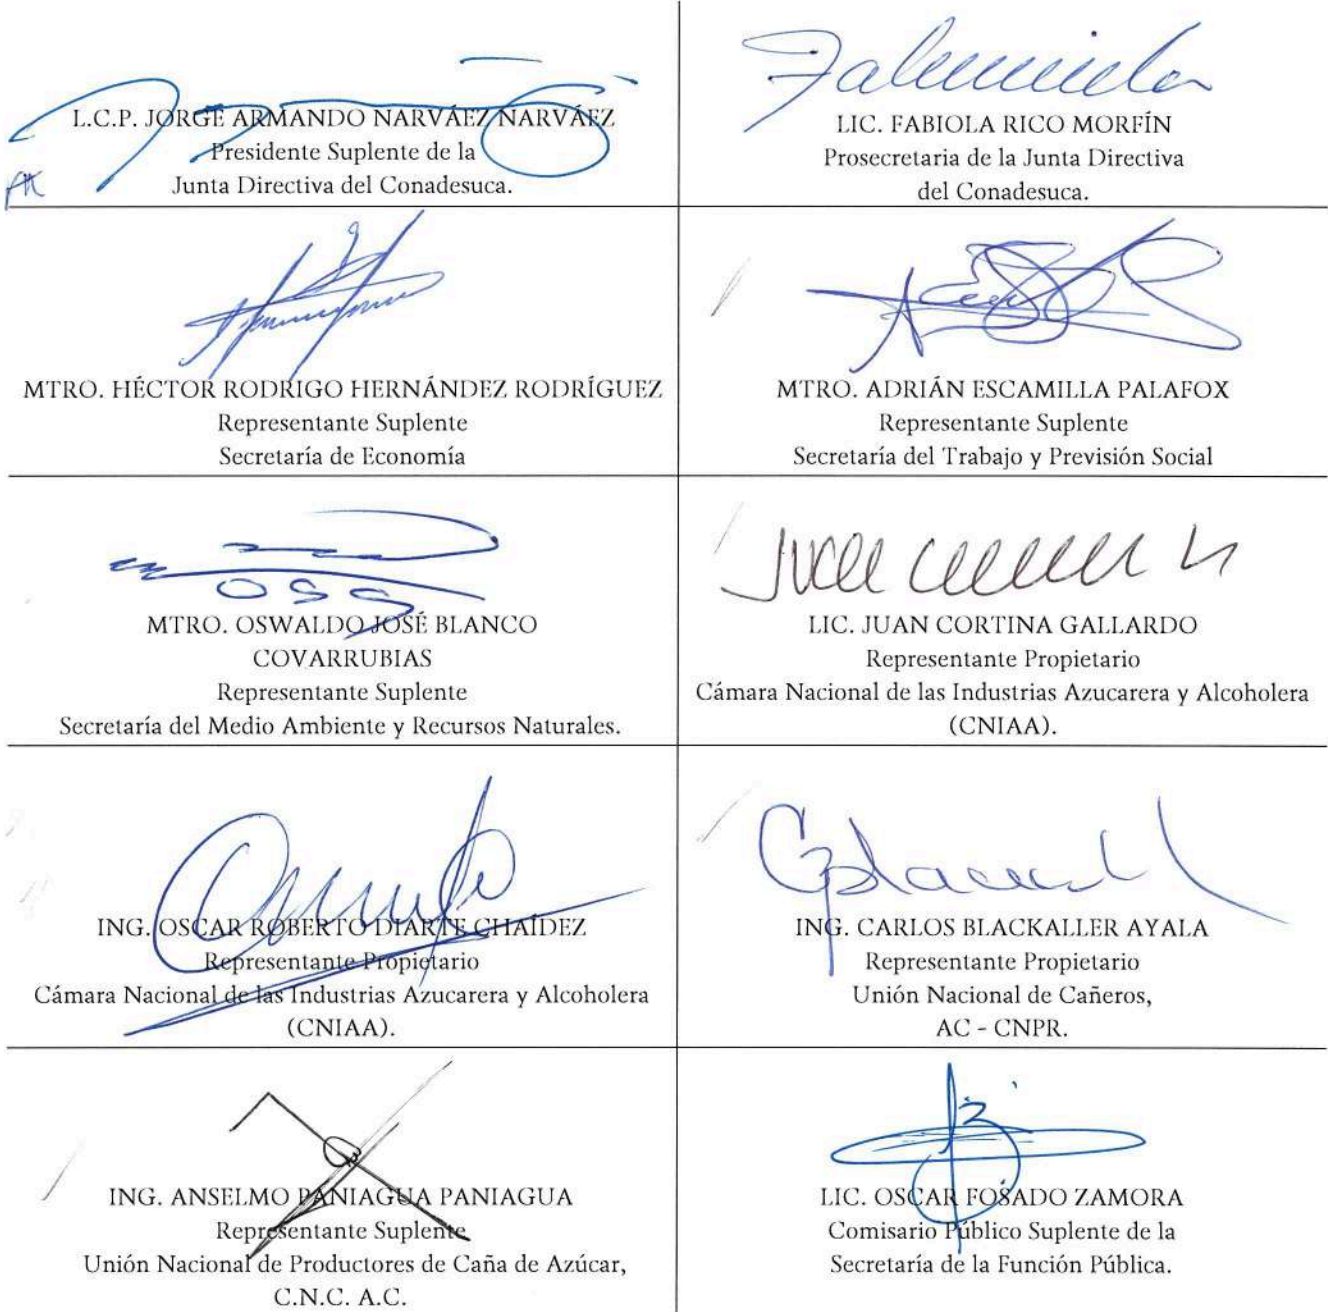 L.C.P. JORGE ARMANDO NARVÁEZ NARVÁEZ
Presidente Suplente de la
Junta Directiva del Conadesuca.
LIC. FABIOLA RICO MORFÍN
Prosecretaria de la Junta Directiva
del Conadesuca.
MTRO. HÉCTOR RODRIGO HERNÁNDEZ RODRÍGUEZ
Representante Suplente
Secretaría de Economía
MTRO. ADRIÁN ESCAMILLA PALAFOX
Representante Suplente
Secretaría del Trabajo y Previsión Social
MTRO. OSWALDO JOSÉ BLANCO
COVARRUBIAS
Representante Suplente
Secretaría del Medio Ambiente y Recursos Naturales.
LIC. JUAN CORTINA GALLARDO
Representante Propietario
Cámara Nacional de las Industrias Azucarera y Alcoholera
(CNIAA).
ING. OSCAR ROBERTO DIARTE CHAÍDEZ
Representante Propietario
Cámara Nacional de las Industrias Azucarera y Alcoholera
(CNIAA).
ING. CARLOS BLACKALLER AYALA
Representante Propietario
Unión Nacional de Cañeros,
AC - CNPR.
ING. ANSELMO PANIAGUA PANIAGUA
Representante Suplente
Unión Nacional de Productores de Caña de Azúcar,
C.N.C. A.C.
LIC. OSCAR FOSADO ZAMORA
Comisario Público Suplente de la
Secretaría de la Función Pública.